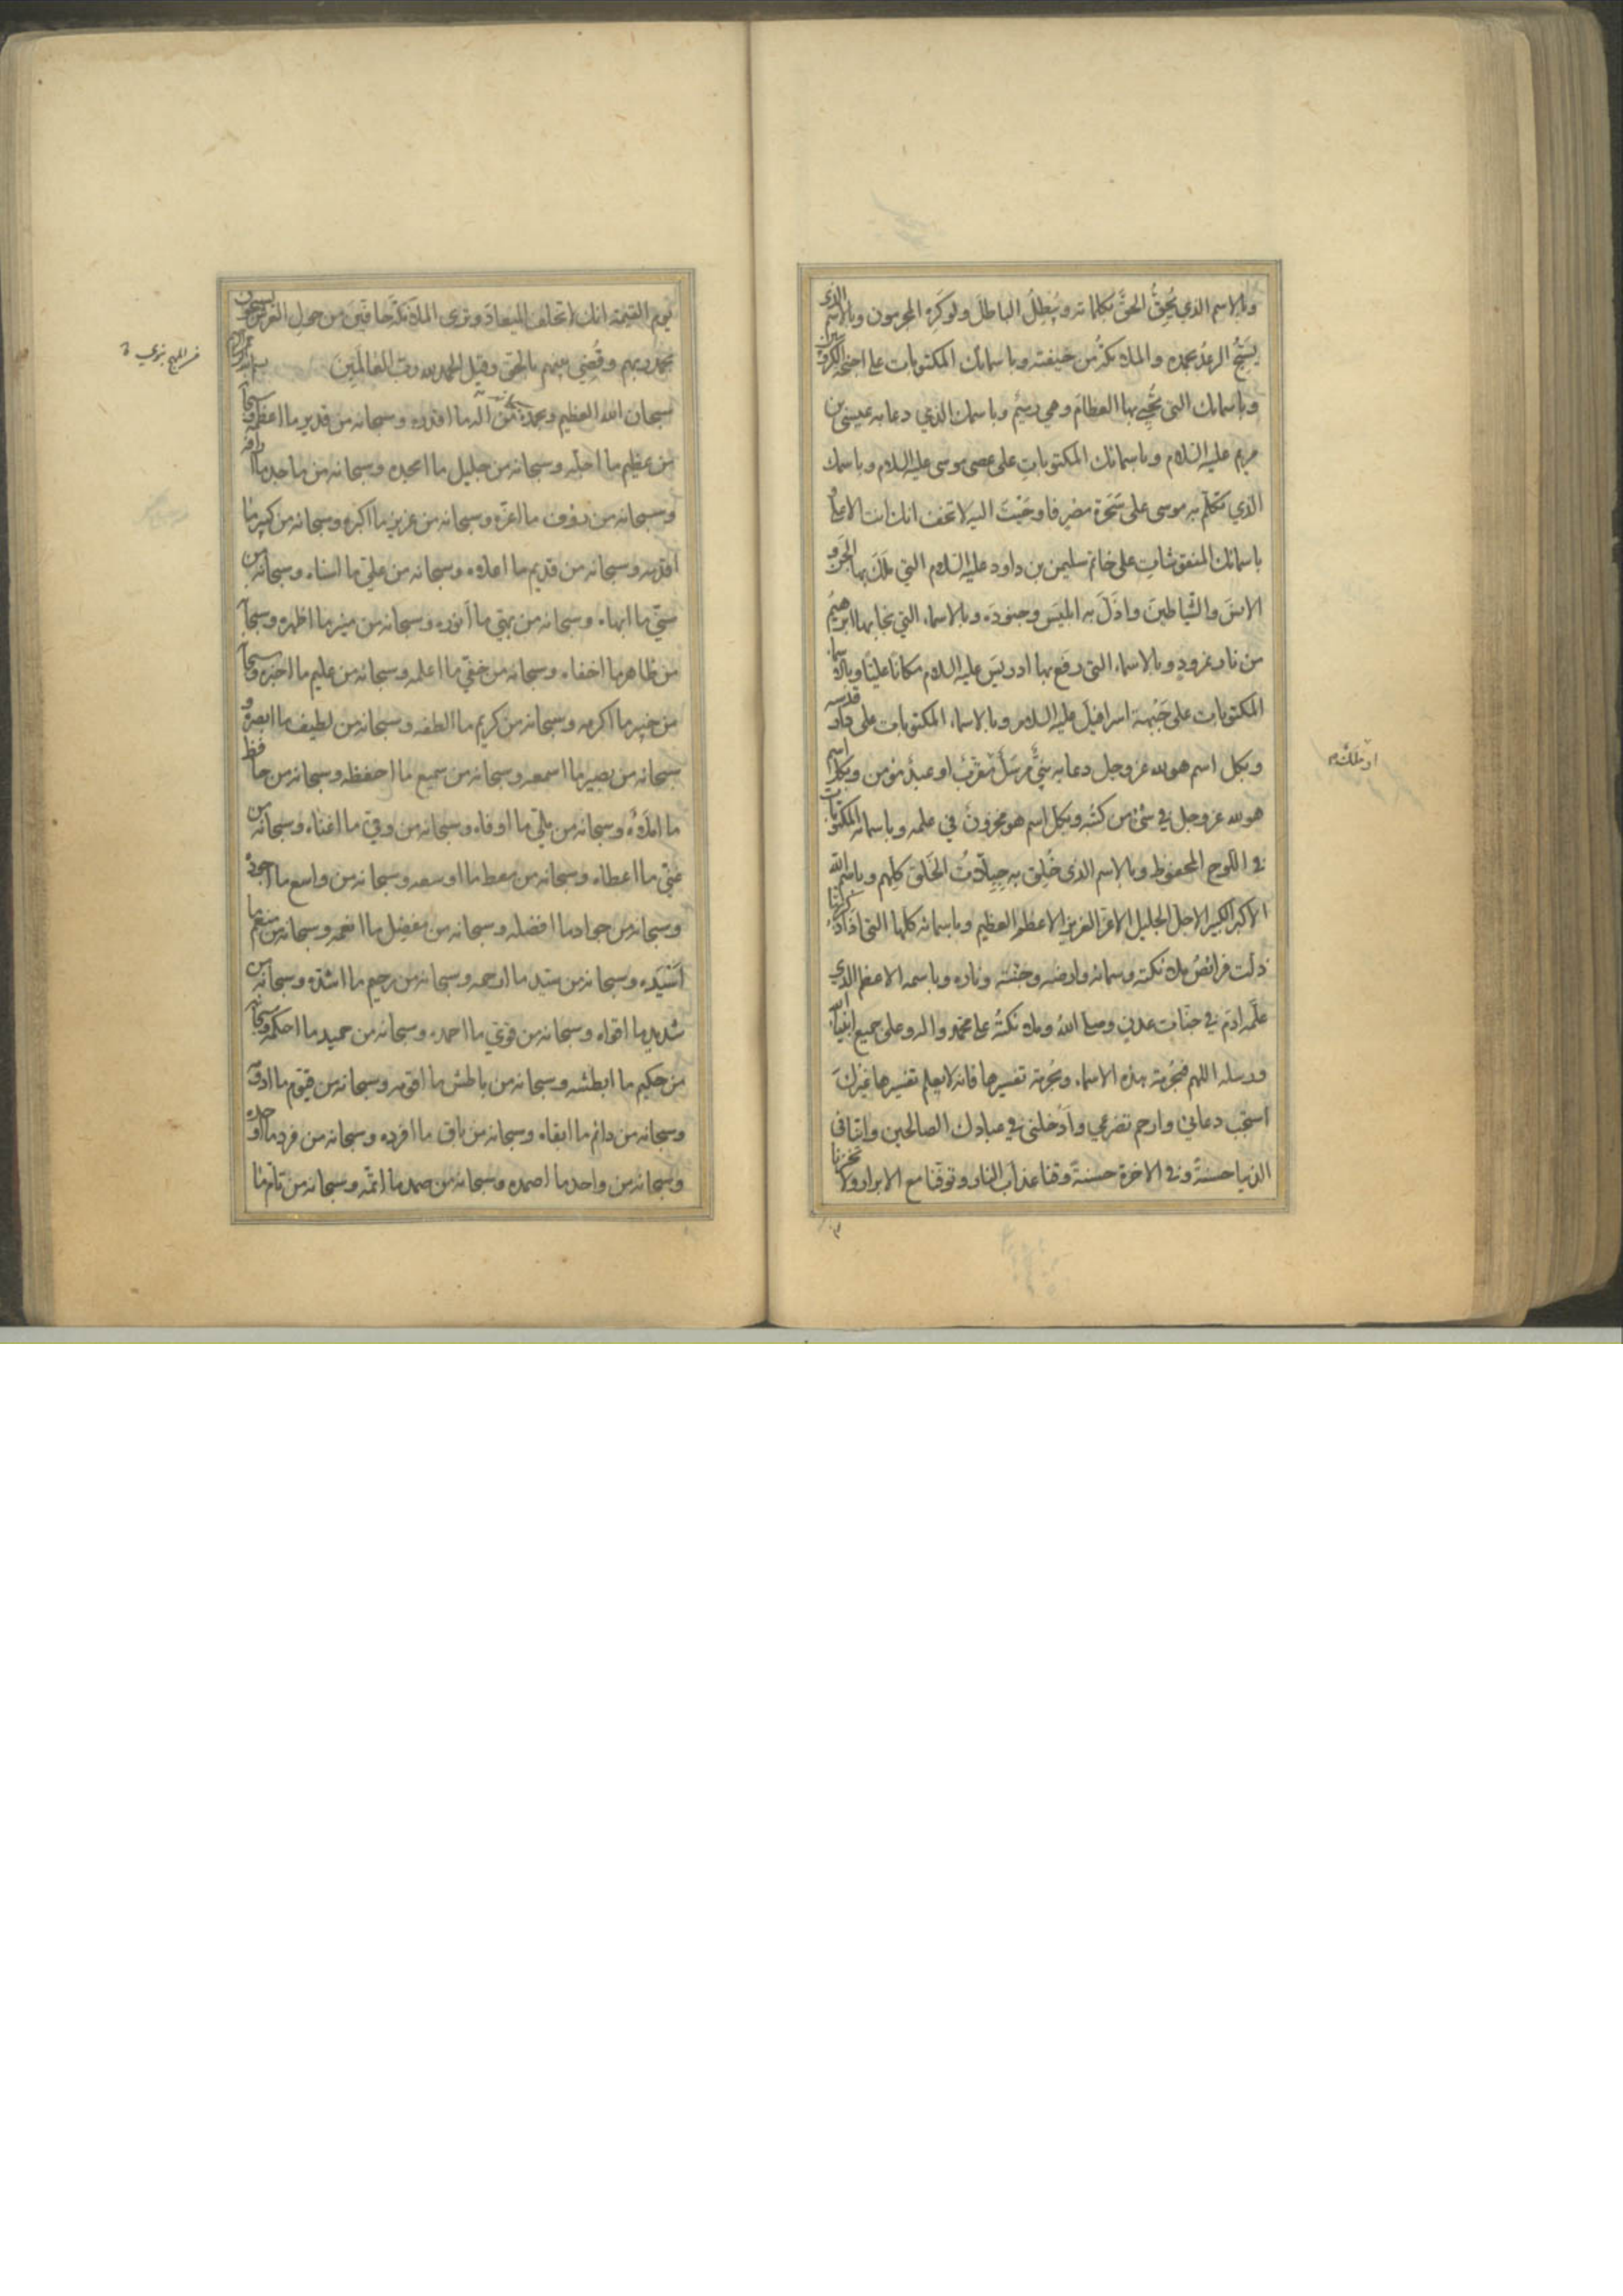 وبالاسم الذي يُحِقُّ الحقَّ بكلماته ويُبطِلُ الباطلَ ولوكَرِهَ المجرمون وبالاسم الذي
يُسَبِّحُ الرعدُ بحمده والملائكةُ من خيفته وباسمائك المكتوبات على اجنحة الكروبيين
وباسمائك التي تُحيي بها العظامَ وهي رميمٌ وباسمك الذي دعا به عيسى بن
مريم عليه السلام وباسمائك المكتوباتِ على عصى موسى عليه السلام وباسمك
الذي تكلّم به موسى على سَحَرَة مصر فاوحَيْتَ اليه لا تخف انك انت الاعلى و
باسمائك المنقوشاتِ على خاتم سليمن بن داود عليه السلام التي ملَكَ بها الجنَّ و
الانسَ والشّياطينَ واذَلَّ به ابليسَ وجنودَه وبالاسماء التي نجا بها ابرهيمُ
من نار نمرود وبالاسماء التي رفع بها ادريسَ عليه السلام مكانًا عليّا وبالاسماء
المكتوبات على جَبْهة اسرافيل عليه السلام وبالاسماء المكتوبات على دار قدسه
وبكل اسم هولله عز وجل دعا به نبيٌّ مرسَلٌ مقرّبٌ او عبدٌ مؤمن وبكل اسم
او ملَكٌ
هولله عز وجل في شئ من كتبُه وبكل اسم هو مخزونٌ في علمه وباسمائه المكتوبات
في اللوح المحفوظ وبالاسم الذي خُلِق به جِبِلّاتُ الخَلق كلِّهم وباسم الله
الاكبر الكبير الاجل الجليل الاعز العزيز الاعظم العظيم وباسمائه كلها التي اذا ذكرها
ذلت فرائصُ ملائكته وسمائه وارضه وجنته وناره وباسمه الاعظم الذي
علَّمه ادمَ في جنّات عدنٍ وصلى اللهُ وملائكتُه على محمّد واله وعلى جميع انبياء الله
ورسله اللهم فبحُرمة هذه الاسماء وبحُرمة تفسيرها فانه لا يعلم تفسيرها غيرُكَ
استجب دعائي وارحم تضرعي وأدخلني في عبادك الصالحين واتنا في
الدنيا حسنةً وفي الاخرة حسنةً وقنا عذاب النار وتوفّنا مع الابرار ولا تخزنا
يوم القيمة انك لا تخلف الميعاد وترى الملائكةَ حافّينَ من حول العرش يسبحون
بحمد ربهم وقُضِيَ بينهم بالحق وقيل الحمد لله رب العالَمينَ
سبحان الله العظيم وبحمده من اله ما اقدره وسبحانه من قدير ما اعظمه وسبحانه
من عظيم ما اجلّه وسبحانه من جليل ما امجده وسبحانه من ماجد ما ارافه
وسبحانه من رؤف ما اعزّه وسبحانه من عزيز ما اكبره وسبحانه من كبير ما
اقدمه وسبحانه من قديم ما اعلاه وسبحانه من عليّ ما اسناه وسبحانه من
سنيّ ما ابهاه وسبحانه من بهيّ ما انوره وسبحانه من منير ما اظهره وسبحانه
من ظاهر ما اخفاه وسبحانه من خفيّ ما اعلمه وسبحانه من عليم ما اخبره وسبحانه
من خبير ما اكرمه وسبحانه من كريم ما الطفه وسبحانه من لطيف ما ابصره و
سبحانه من بصير ما اسمعه وسبحانه من سميع ما احفظه وسبحانه من حافظ
ما املاه وسبحانه من مليّ ما اوفاه وسبحانه من وفيّ ما اغناه وسبحانه من
غنيّ ما اعطاه وسبحانه من معط ما اوسعه وسبحانه من واسع ما اجوده
وسبحانه من جواد ما افضله وسبحانه من مفضل ما انعمه وسبحانه من منعم ما
اَسْيَدَه وسبحانه من سيّد ما ارحمه وسبحانه من رحيم ما اشدّه وسبحانه من
شديد ما اقواه وسبحانه من قويّ ما احمده وسبحانه من حميد ما احكمه وسبحانه
من حكيم ما ابطشه وسبحانه من باطش ما اقومه وسبحانه من قيّوم ما ادومه
وسبحانه من دائم ما ابقاه وسبحانه من باق ما افرده وسبحانه من فرد ما اوحده
وسبحانه من واحد ما اصمده وسبحانه من صمد ما اتمّه وسبحانه من تامّ ما